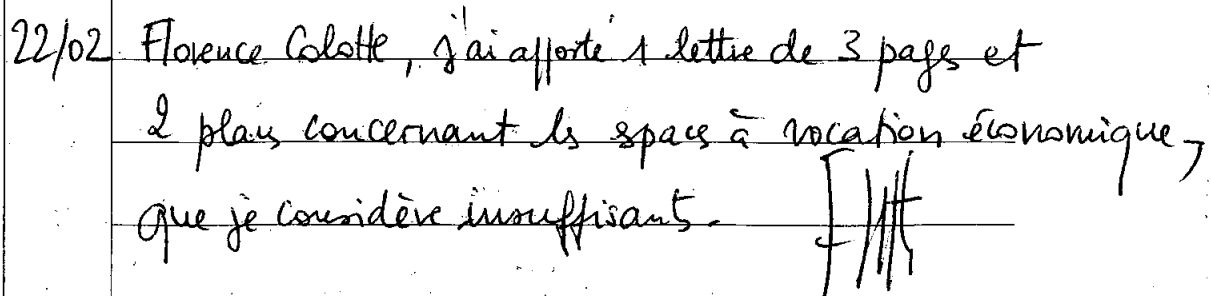 22/02 Florence Colotte, j'ai apporté 1 lettre de 3 pages et
2 plans concernant les espaces à vocation économique,
que je considère insuffisants.